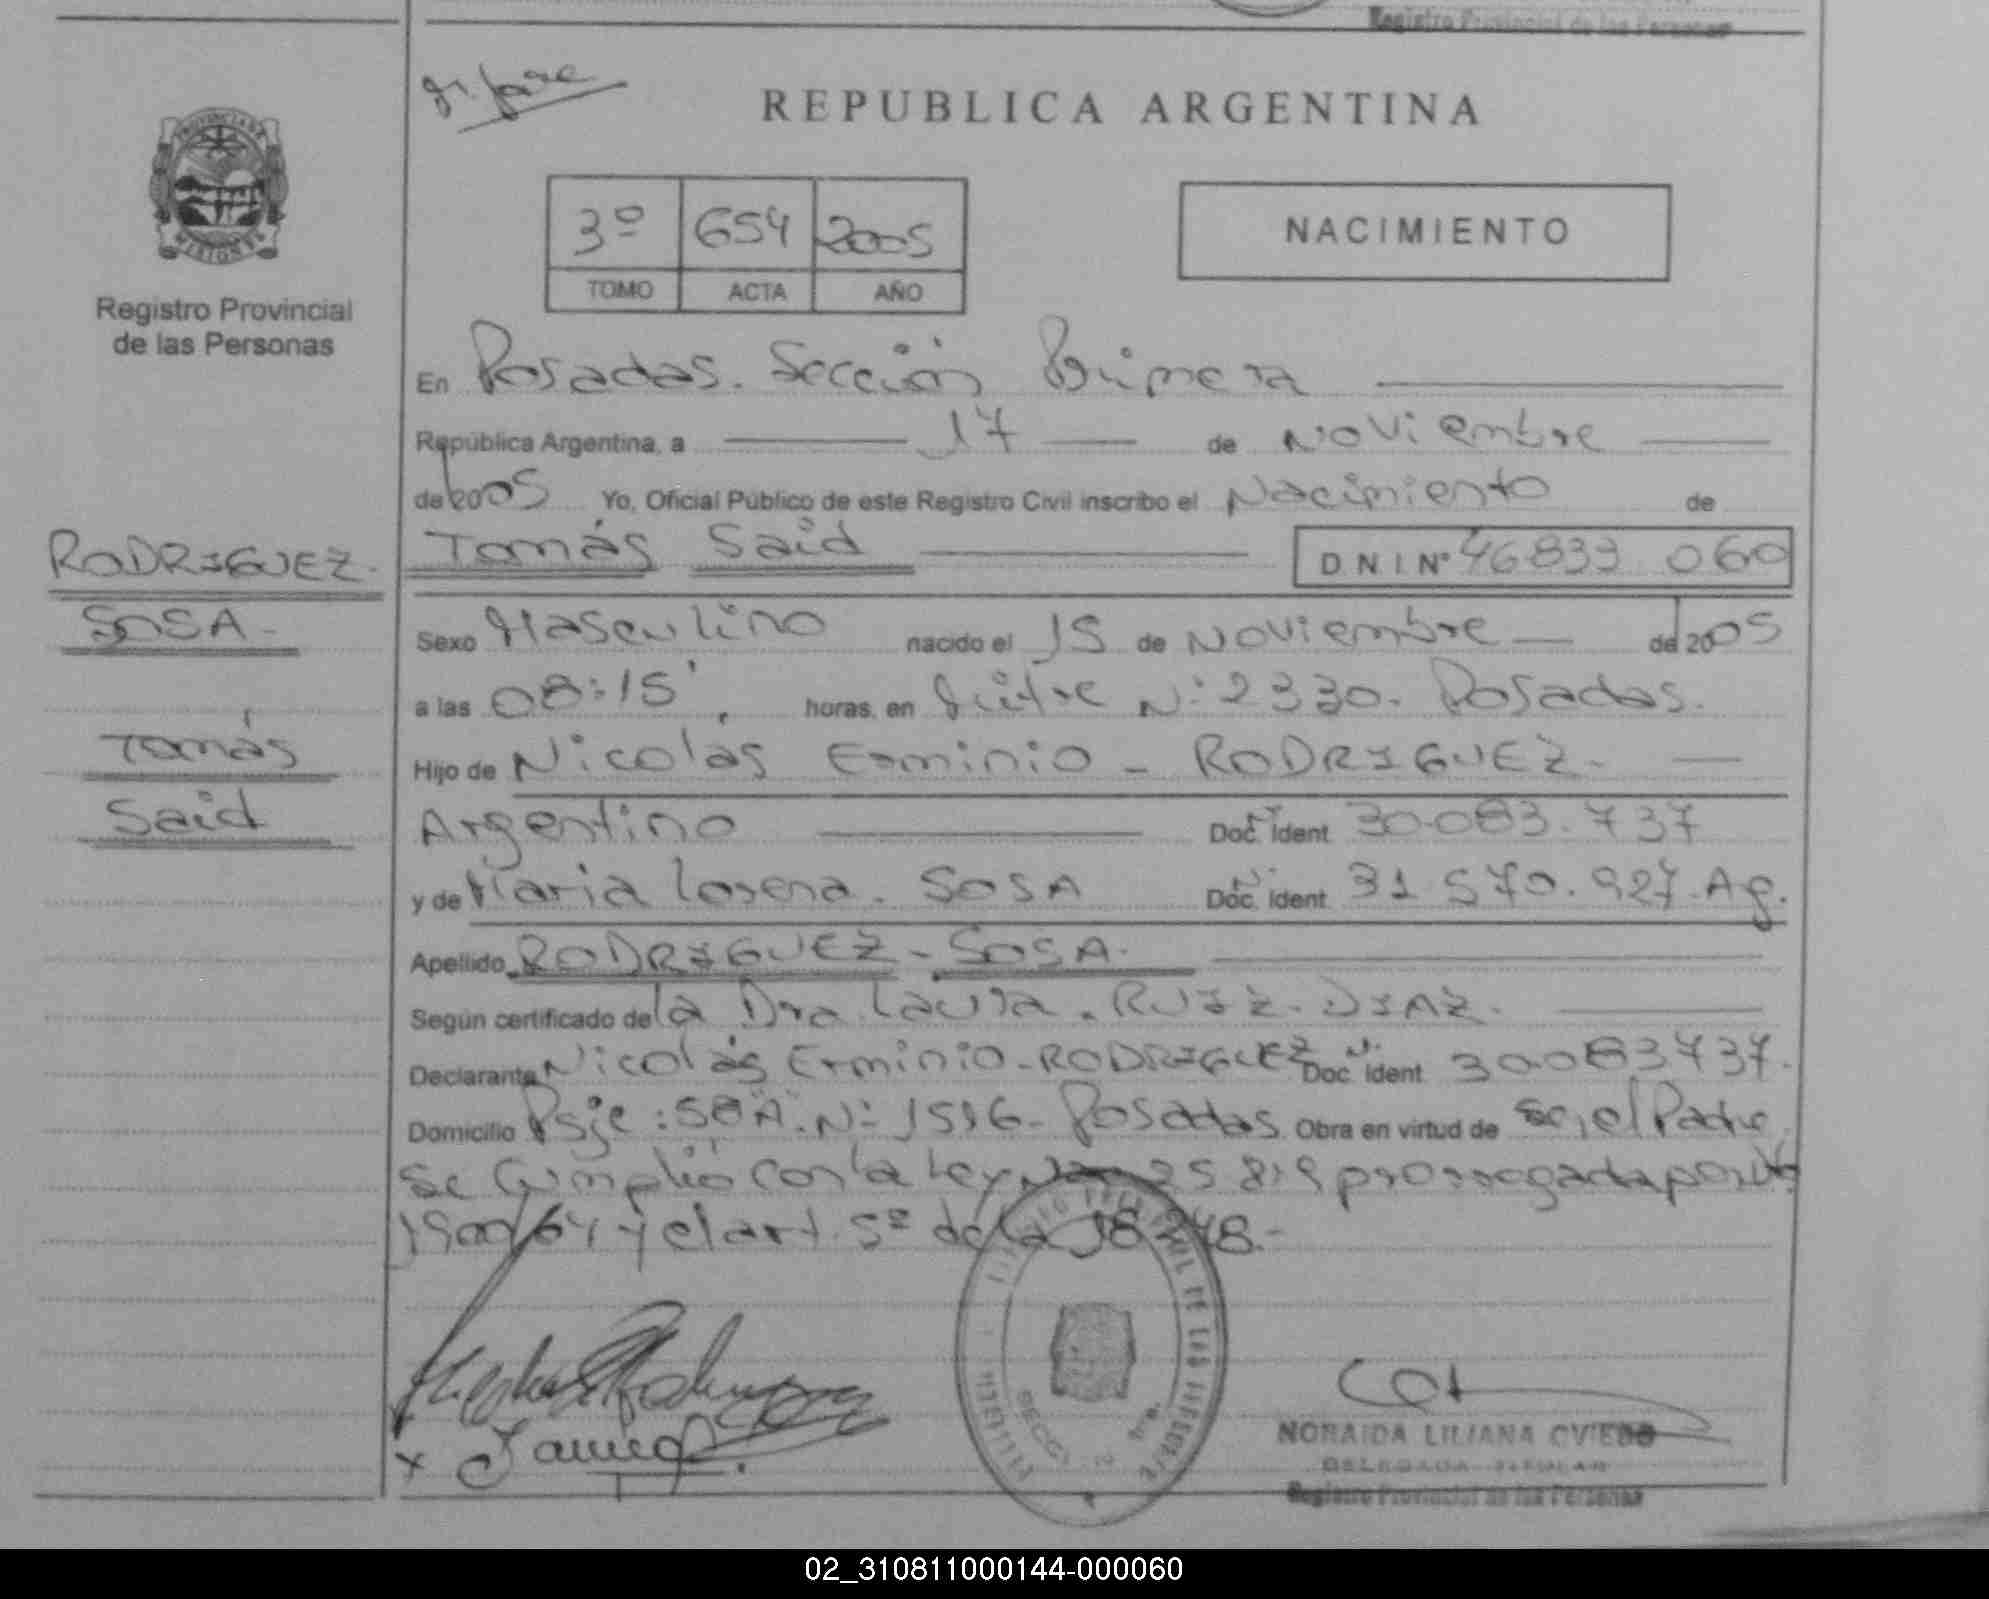 Registro Provincial de las Personas
REPUBLICA ARGENTINA
PROVINCIA DE
MISIONES
Registro Provincial
de las Personas
3º 654 2005
TOMO ACTA AÑO
NACIMIENTO
En Posadas. Sección Primera
República Argentina, a 17 de Noviembre
de 2005 Yo, Oficial Público de este Registro Civil inscribo el Nacimiento de
Tomás Said D.N.I Nº 46833 060
RODRIGUEZ.
SOSA.
Tomás
Said
Sexo Masculino nacido el 15 de Noviembre de 2005
a las 08:15' horas, en Mitre Nº 2330. Posadas.
Hijo de Nicolás Erminio - RODRIGUEZ.
Argentino Doc. Ident 30.083.737
y de Maria Lorena. SOSA Doc. Ident. 31 570.927. Ag.
Apellido RODRIGUEZ - SOSA.
Según certificado de la Dra. Laura. RUIZ. DIAZ.
Declarante Nicolás Erminio - RODRIGUEZ Doc. Ident 30.083737.
Domicilio Psje: 58"A". Nº 1516 - Posadas. Obra en virtud de ser el Padre
Se Cumplió con la Ley 25 819 prorrogada por
1500/04 y el art. 5º de la 18 248.-
NORAIDA LILIANA OVIEDO
DELEGADA TITULAR
Registro Provincial de las Personas
02_310811000144-000060